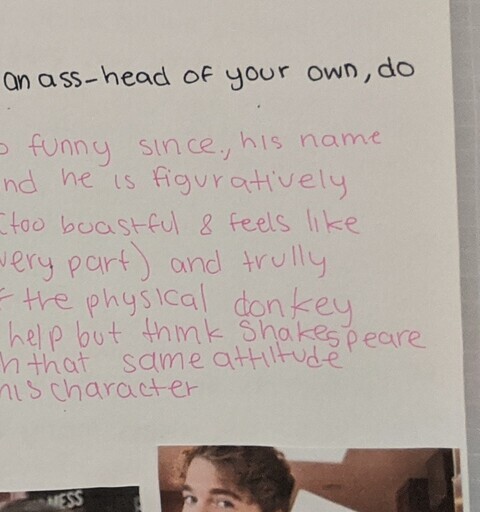 an ass-head of your own, do
o funny since, his name
nd he is figuratively
(too boastful & feels like
very part) and trully
the physical donkey
help but think Shakespeare
h that same attitude
his character
NESS